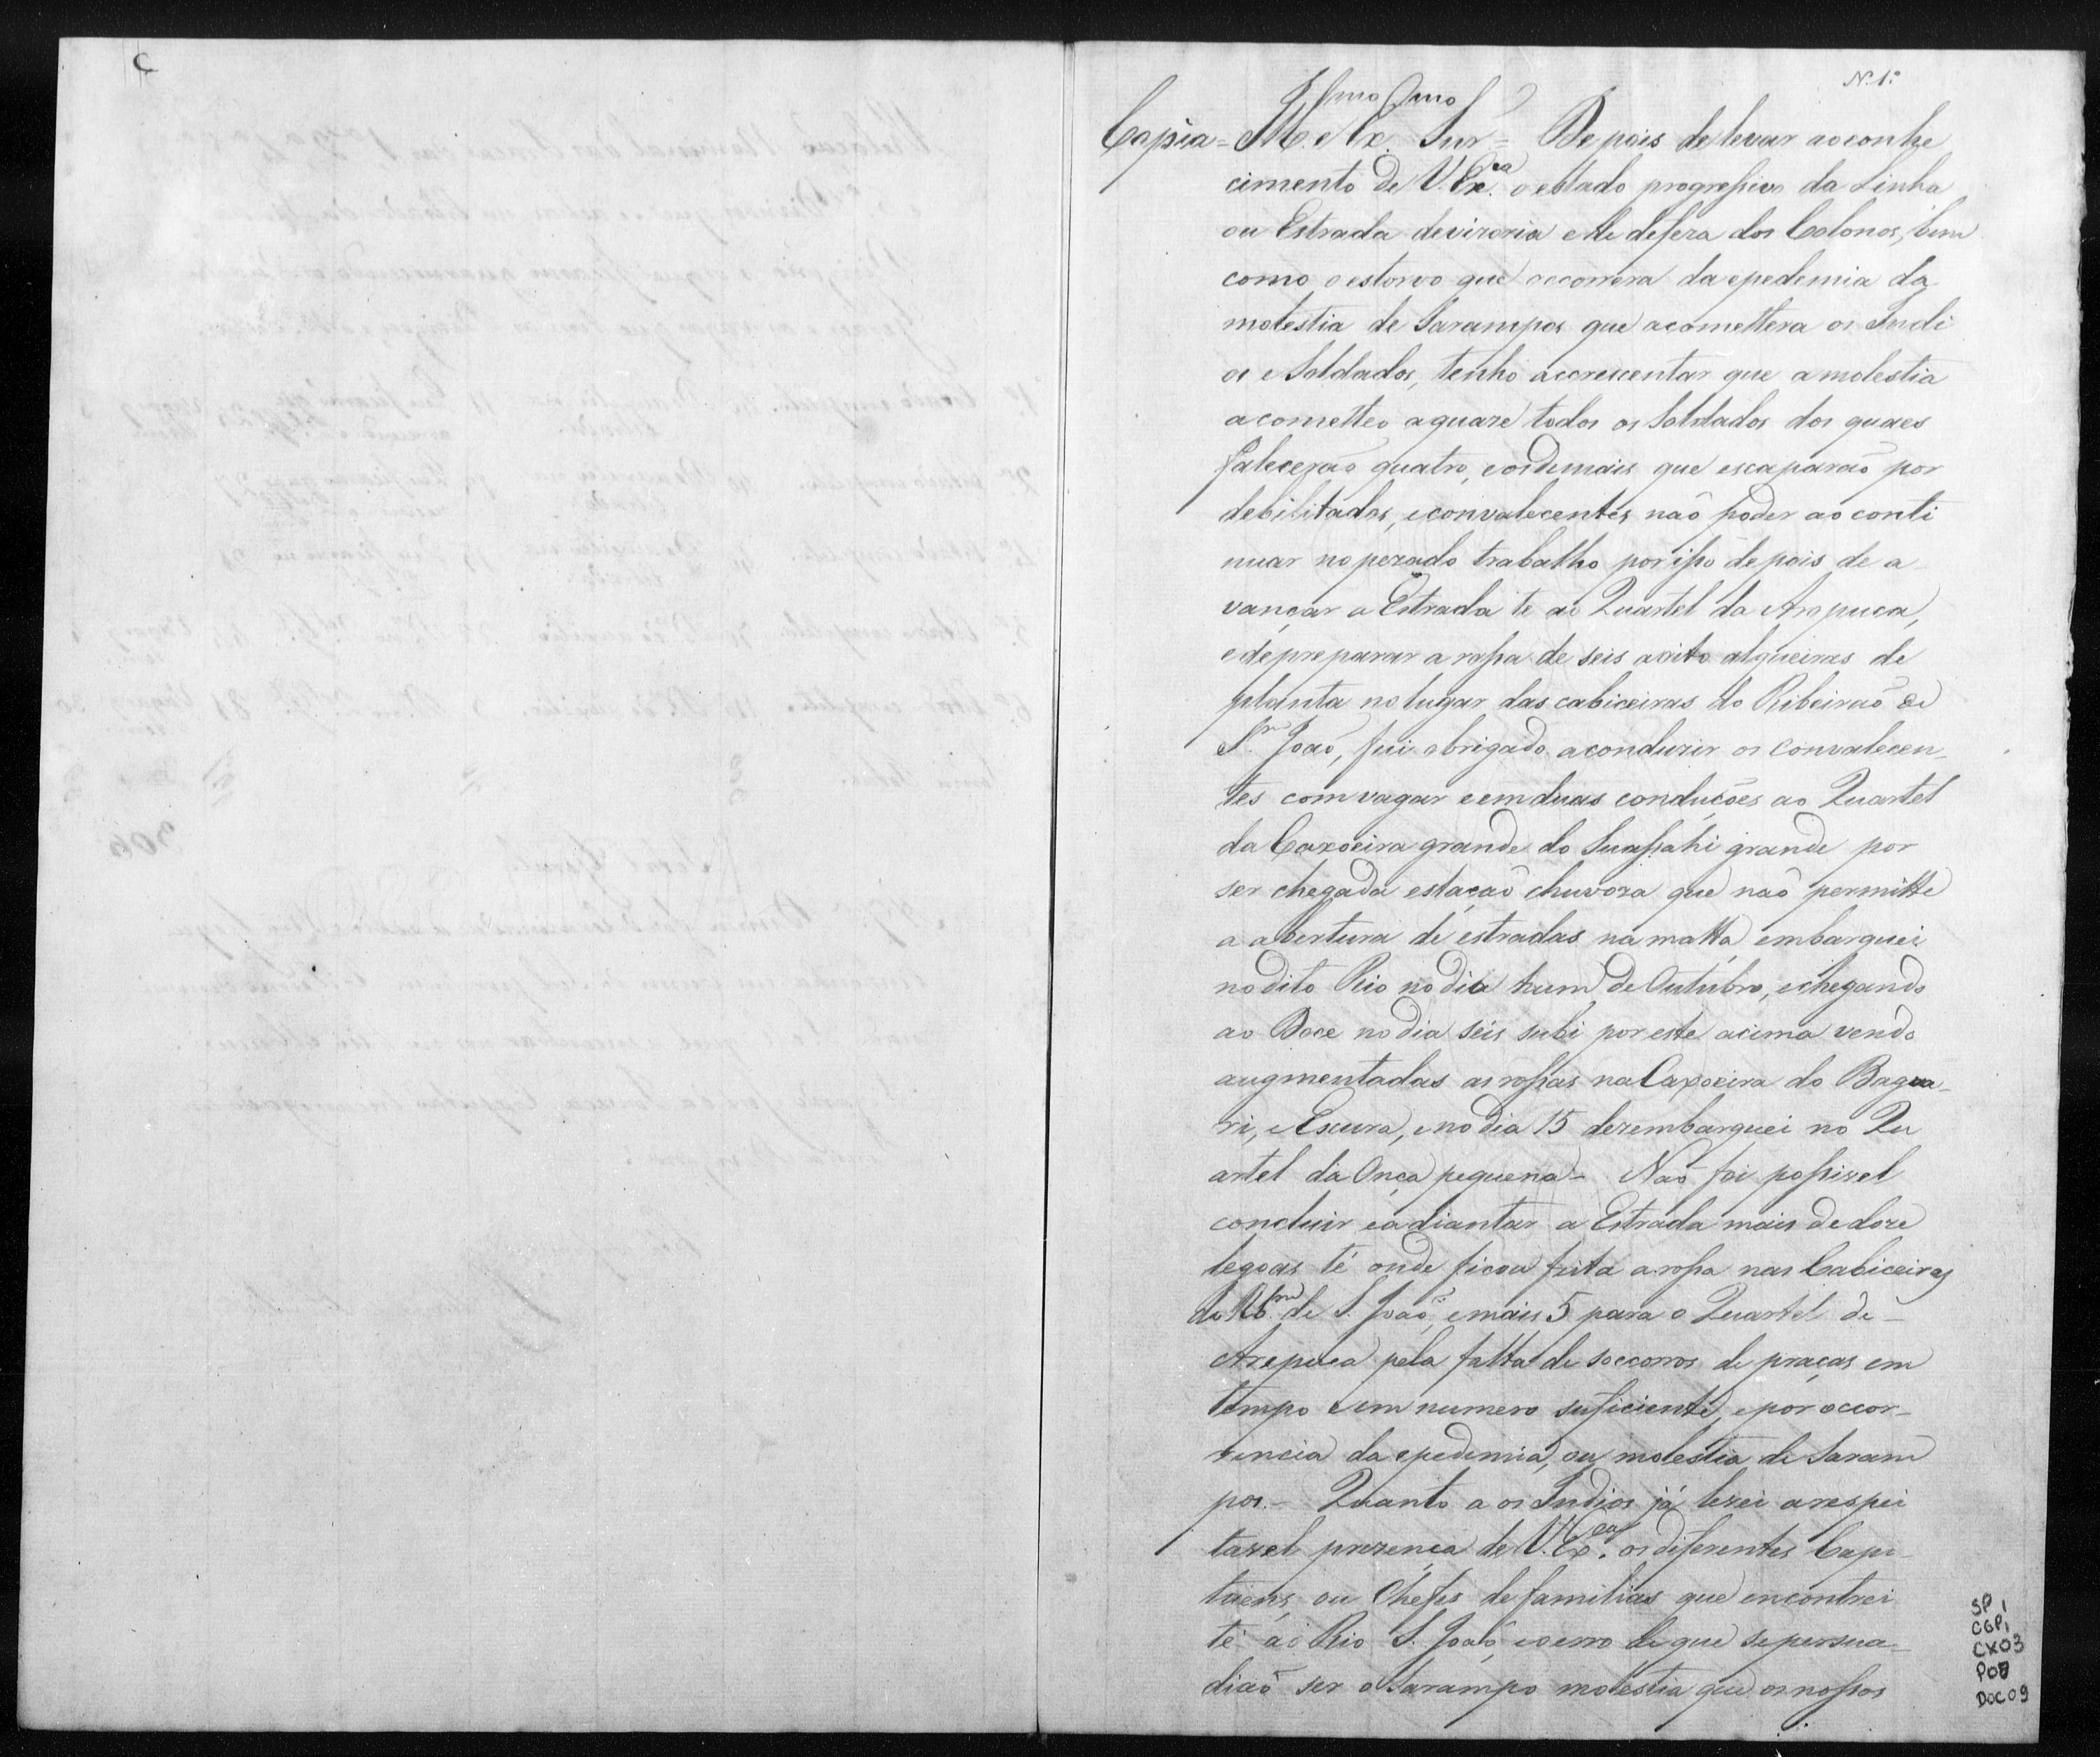 C
N. 1.º
Copia = Ill.mo e Ex.mo Snr = Depois de levar ao conhe
cimento de V. Ex.ca o estado progressivo da Linha
ou Estrada devizoria e de defeza dos Colonos, bem
como o estorvo que occorrera da epedemia da
molestia de Sarampos que acomettera os Indi
os e Soldados, tenho accrescentar que a molestia
acometteo a quaze todos os Soldados dos quaes
falecerão quatro, e os demais que escaparão por
debilitados, e convalecentes não poder ao conti
nuar no pezado trabalho por isso depois de a
vançar a Estrada te ao Quartel da Arapuca,
e de preparar a rossa de seis a oito alqueiras de
planta no lugar das cabiceiras do Ribeirão de
S.m João, fui obrigado a conduzir os convalecen_
tes com vagar e em duas conduções ao Quartel
da Caxoeira grande do Suassuhi grande por
ser chegada estação chuvoza que não permitte
a abertura de estradas na matta, embarquei
no dito Rio no dia hum de Outubro, e chegando
ao Doce no dia seis subi por este acima vendo
augmentadas as rossas na Caxoeira do Bagua_
ri, e Escura, e no dia 15 dezembarquei no Qu
artel da Onça pequena - Não foi possivel
concluir e adiantar a Estrada mais de doze
legoas té onde ficou feita a rossa nas Cabiceiras
do Rb.m de S. João, e mais 5 para o Quartel de _
Arepuca pela falta de soccorros de praças em
tempo e em numero suficiente, e por occor_
rencia da epedimia, ou molestia de Saram
pos. - Quanto a os Indios já levei a respei
tavel prezença de V. Ex.ca os diferentes Capi_
taens ou Chefes de familias que encontrei
té ao Rio S. João, e o erro de que se persua_
dião ser o Sarampo molestia que os nossos
SP 1
CGP 1
CX03
P07
DOC 09